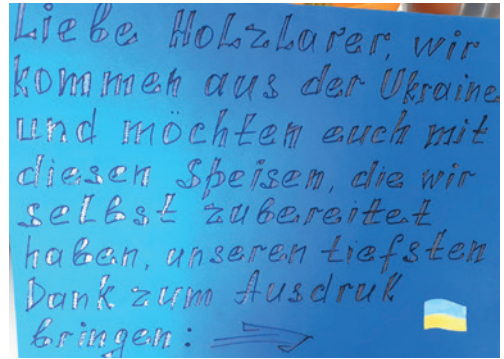 Liebe Holzlarer, wir
kommen aus der Ukraine
und möchten euch mit
diesen Speisen, die wir
selbst zubereitet
haben, unseren tiefsten
Dank zum Ausdruk
bringen: